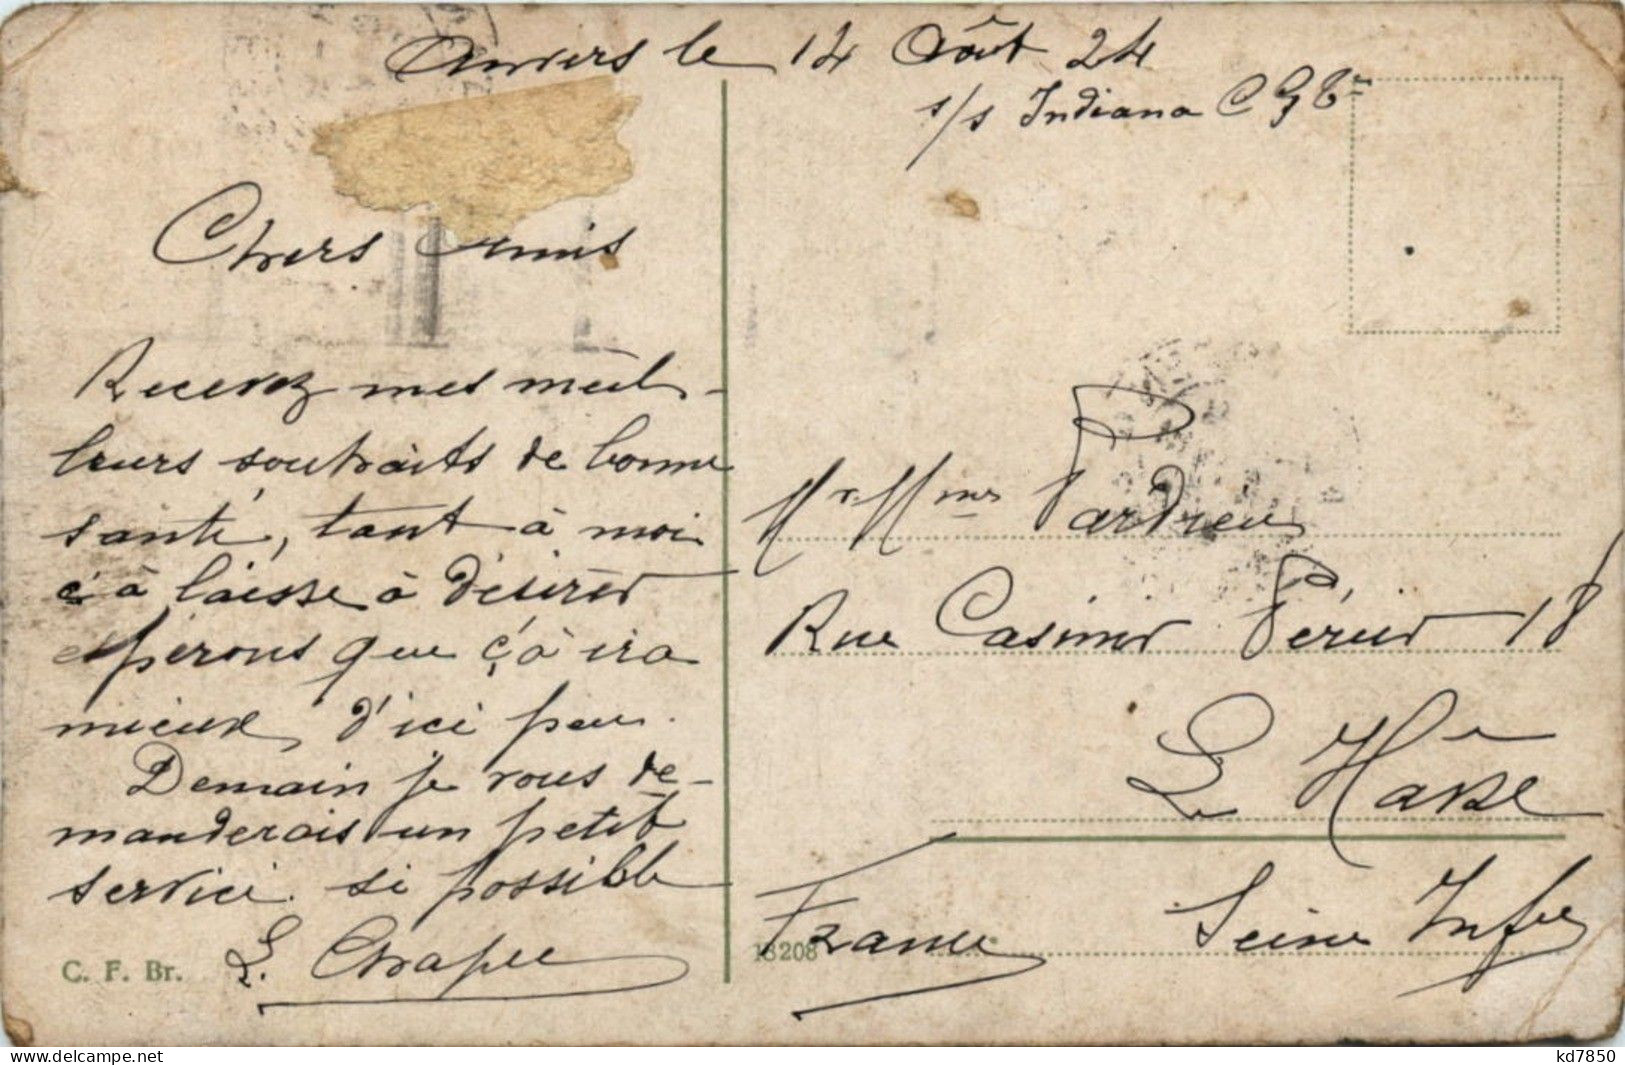 Anvers le 14 Août 24
s/s Indiana C G Tle
Chers Amis
Recevez mes meil-
leurs souhaits de bonne
santé, tant à moi
ç'à laisse à désirer
espérons que ç'à ira
mieux d'ici peu.
Demain je vous de-
manderais un petit
service si possible
L. Chapee
C. F. Br.
Mr Mme Tardieu
Rue Casimir Périer 18
Le Havre
Seine Infre
France
13208
delcampe.net
kd7850